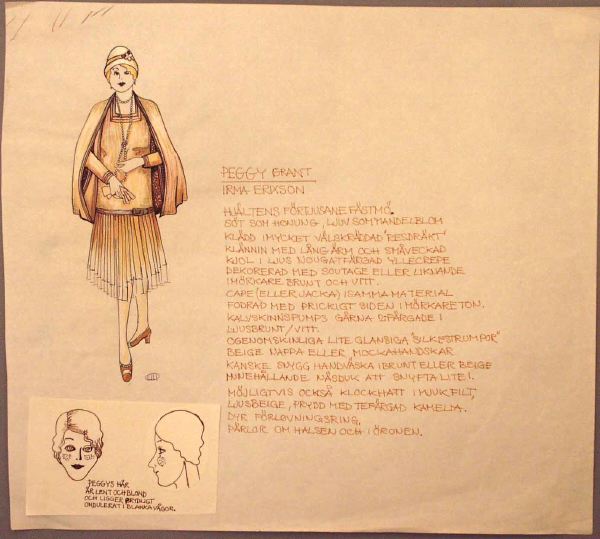 PEGGY GRANT
IRMA ERIKSON
HJÄLTENS FÖRTJUSANE FÄSTMÖ.
SÖT SOM HONUNG, LJUV SOM MANDELBLOM
KLÄDD I MYCKET VÄLSKRÄDDAD "RESDRÄKT"
KLÄNNIN MED LÅNG ÄRM OCH SMÅVECKAD
KJOL I LJUS NOUGATFÄRGAD YLLECREPE
DEKORERAD MED SOUTAGE ELLER LIKNANDE
I MÖRKARE BRUNT OCH VITT.
CAPE (ELLER JACKA) I SAMMA MATERIAL
FODRAD MED PRICKIGT SIDEN I MÖRKARE TON.
KALVSKINNSPUMPS GÄRNA 2FÄRGADE I
LJUSBRUNT/VITT.
OGENOMSKINLIGA LITE GLANSIGA "SILKESTRUMPOR"
BEIGE NAPPA ELLER MOCKAHANDSKAR
KANSKE SNYGG HANDVÄSKA I BRUNT ELLER BEIGE
INNEHÅLLANDE NÄSDUK ATT SNYFTA LITE I.
MÖJLIGTVIS OCKSÅ KLOCKHATT I MJUK FILT,
LJUSBEIGE, PRYDD MED TEFÄRGAD KAMELIA.
DYR FÖRLOVNINGSRING,
PÄRLOR OM HALSEN OCH I ÖRONEN.
PEGGYS HÅR
ÄR LENT OCH BLOND
OCH LIGGER PRYDLIGT
ONDULERAT I BLANKA VÅGOR.